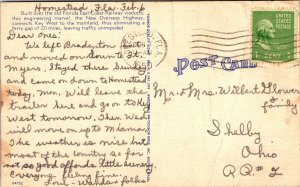 Homestead, Fla Feb. 6
Built over the old Florida East Coast Railway
this engineering marvel, the New Overseas Highway,
connects Key West to the mainland, thus eliminating a
ferry gap of 20 miles, leaving traffic unimpeded
Dear Ones:
We left Bradenton
and moved on down to Ft.
Myers. Stayed there Sunday
and came on down to Homestead
today Mon. Will leave the
trailer here and go on to Key
West tomorrow. Then we
will move on up to Miami.
The weather is nice but
most of the country so far
not so good affords little scenery
Everyone feeling fine.
Love - Wanda & folks
POST CARD
UNITED STATES POSTAGE
1 CENT 1
FLA
Mr. & Mrs. Willet Glower
& family
Shelby
Ohio
R.R. # 2